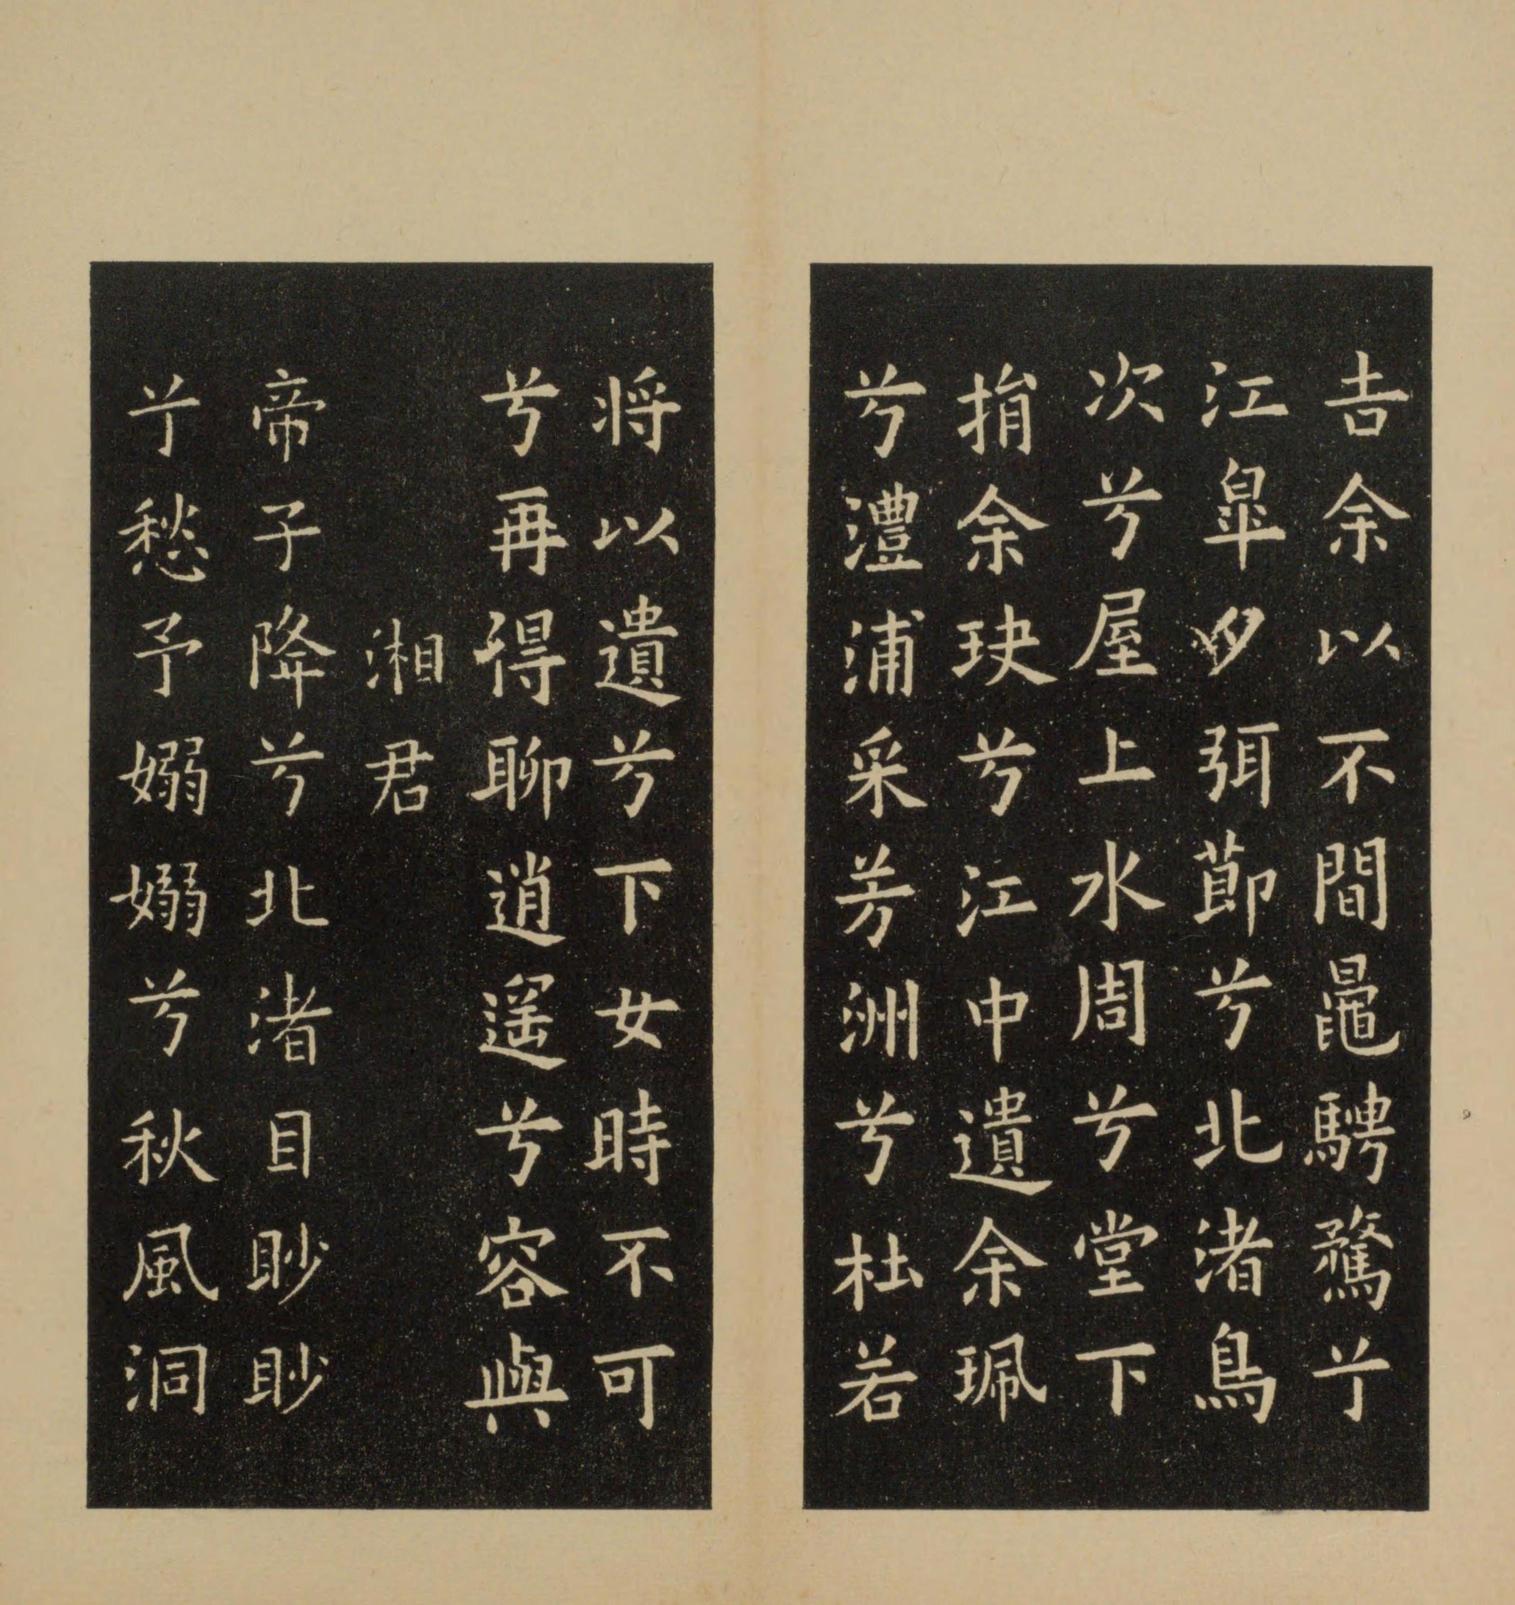 告余以不間鼂騁騖兮
江皐夕弭莭兮北渚鳥
次兮屋上水周兮堂下
捐余玦兮江中遺余珮
兮澧浦采芳洲兮杜若
将以遺兮下女時不可
兮再得聊逍遥兮容與
湘君
帝子降兮北渚目眇眇
兮愁予嫋嫋兮秋風洞